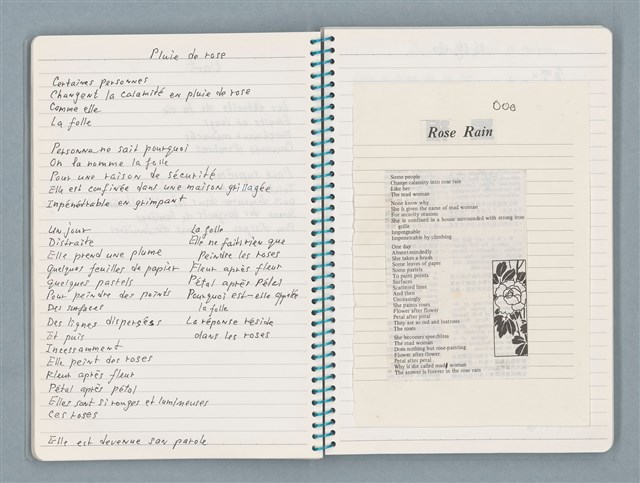 Pluie de rose
Certaines personnes
Changent la calamité en pluie de rose
Comme elle
La folle
Personna ne sait pourquoi
On la nomme la folle
Pour une raison de sécurité
Elle est confinée dans une maison grillagée
Impénétrable en grimpant
Un jour
Distraite
Elle prend une plume
Quelques feuilles de papier
Quelques pastels
Pour peindre des points
Des surfaces
Des lignes dispergées
Et puis
Incessamment
Elle peint des roses
Fleur après fleur
Pétal après pétal
Elles sont si rouges et lumineuses
Ces roses
Elle est devenue san parole
La folle
Elle ne fait rien que
Peindre les roses
Fleur après fleur
Pétal après Pétal
Pourquoi est-elle
la folle
La réponse réside
dans les roses
008
Rose Rain
Some people
Change calamity into rose rain
Like her
The mad woman
None know why
She is given the name of mad woman
For security reason
She is confined in a house surrounded with strong iron
grille
Impregnable
Impenetrable by climbing
One day
Absent-mindedly
She takes a brush
Some leaves of paper
Some pastels
To paint points
Surfaces
Scattered lines
And then
Unceasingly
She paints roses
Flower after flower
Petal after petal
They are so red and lustrous
The roses
She becomes speechless
The mad woman
Does nothing but rose-painting
Flower after flower
Petal after petal
Why is she called mad woman
The answer is forever in the rose rain